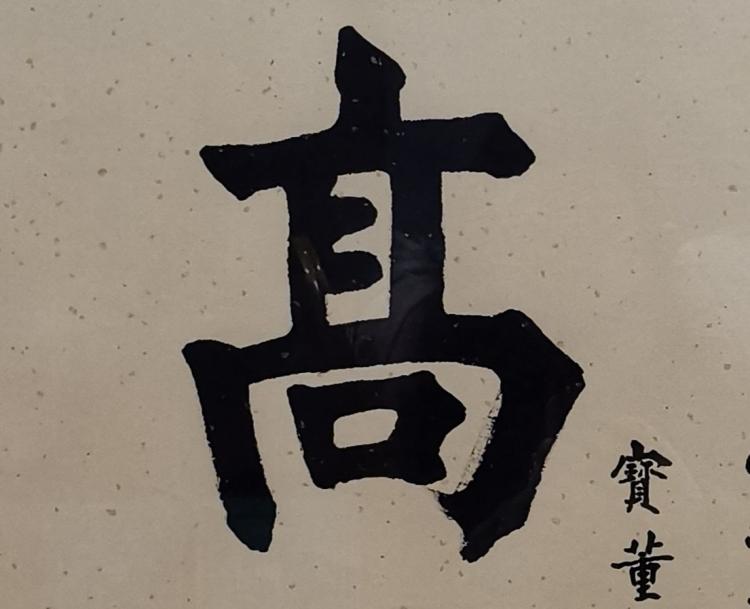 髙
寶董